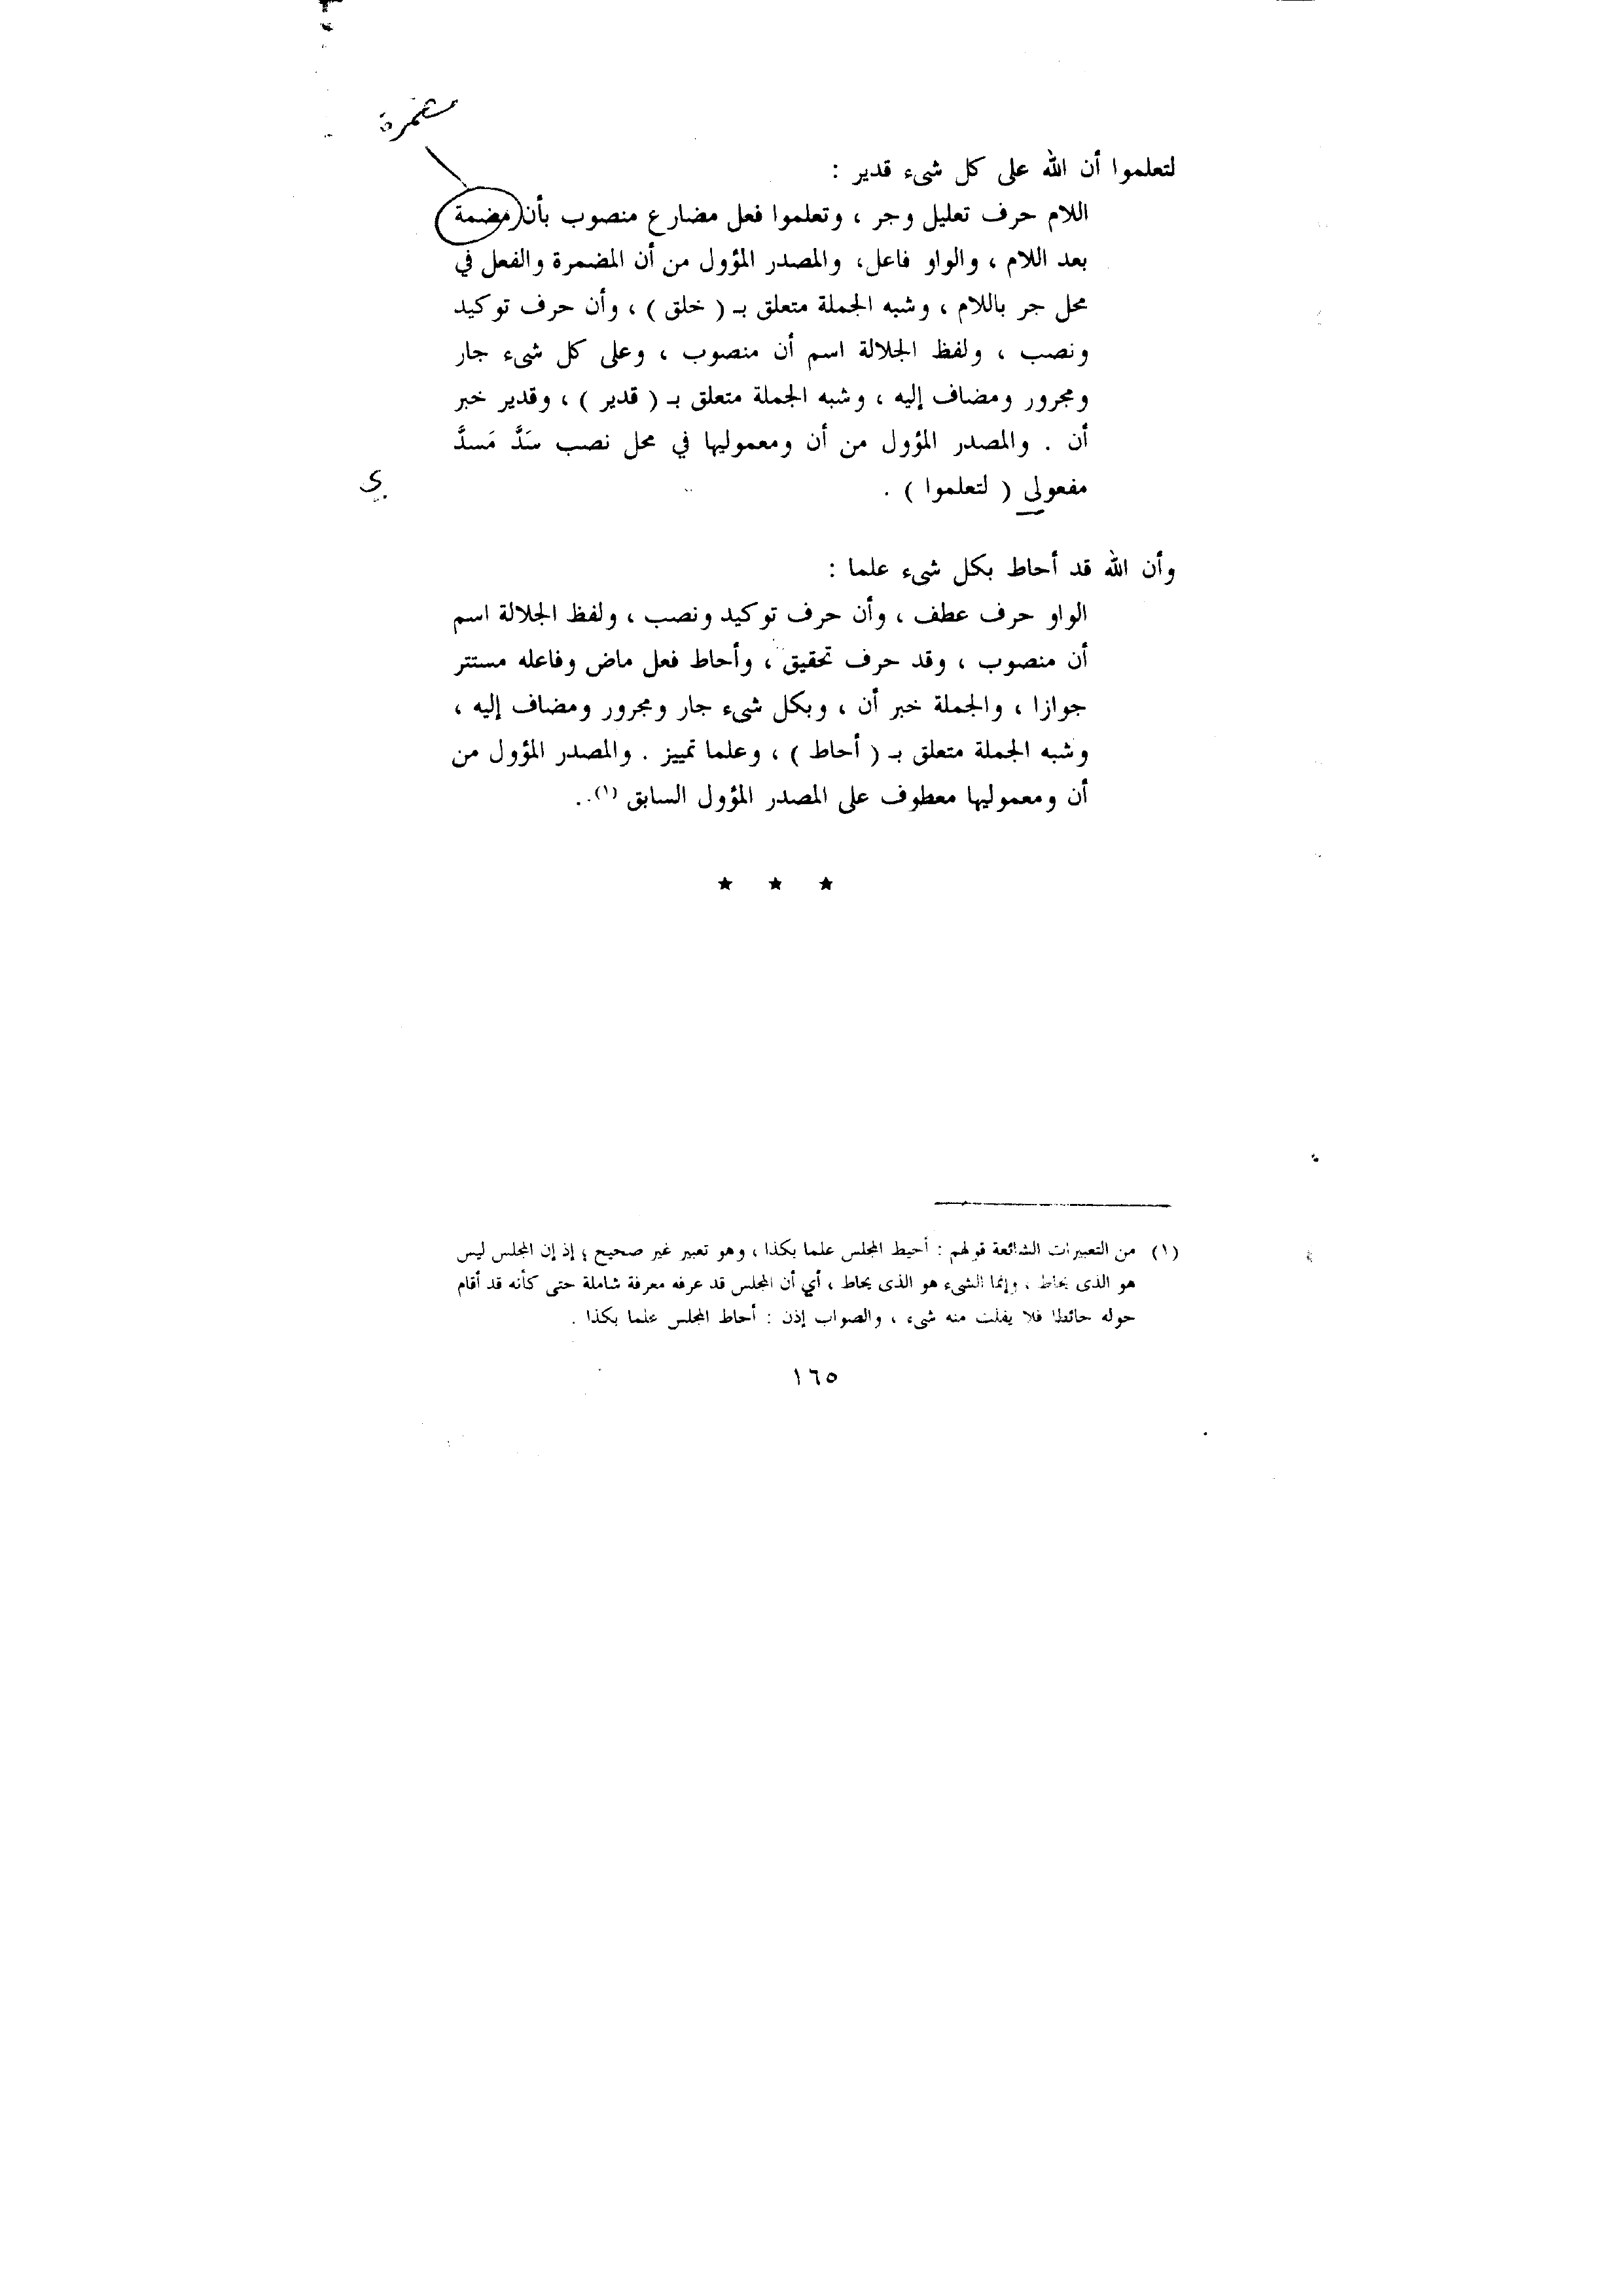 مضمرة
لتعلموا أن الله على كل شىء قدير :
اللام حرف تعليل وجر ، وتعلموا فعل مضارع منصوب بأن مضمة
بعد اللام ، والواو فاعل، والمصدر المؤول من أن المضمرة والفعل في
محل جر باللام ، وشبه الجملة متعلق بـ ( خلق ) ، وأن حرف توكيد
ونصب ، ولفظ الجلالة اسم أن منصوب ، وعلى كل شىء جار
ومجرور ومضاف إليه ، وشبه الجملة متعلق بـ ( قدير ) ، وقدير خبر
أن . والمصدر المؤول من أن ومعموليها في محل نصب سَدَّ مَسدَّ
مفعولى ( لتعلموا ) .
ي
وأن الله قد أحاط بكل شىء علما :
الواو حرف عطف ، وأن حرف توكيد ونصب ، ولفظ الجلالة اسم
أن منصوب ، وقد حرف تحقيق ، وأحاط فعل ماض وفاعله مستتر
جوازا ، والجملة خبر أن ، وبكل شىء جار ومجرور ومضاف إليه ،
وشبه الجملة متعلق بـ ( أحاط ) ، وعلما تمييز . والمصدر المؤول من
أن ومعموليها معطوف على المصدر المؤول السابق (١) .
★ ★ ★
(١) من التعبيرات الشائعة قولهم : أحيط المجلس علما بكذا ، وهو تعبير غير صحيح ؛ إذ إن المجلس ليس
هو الذى يحاط ، وإنما الشىء هو الذى يحاط ، أي أن المجلس قد عرفه معرفة شاملة حتى كأنه قد أقام
حوله حائطا فلا يفلت منه شىء ، والصواب إذن : أحاط المجلس علما بكذا .
١٦٥